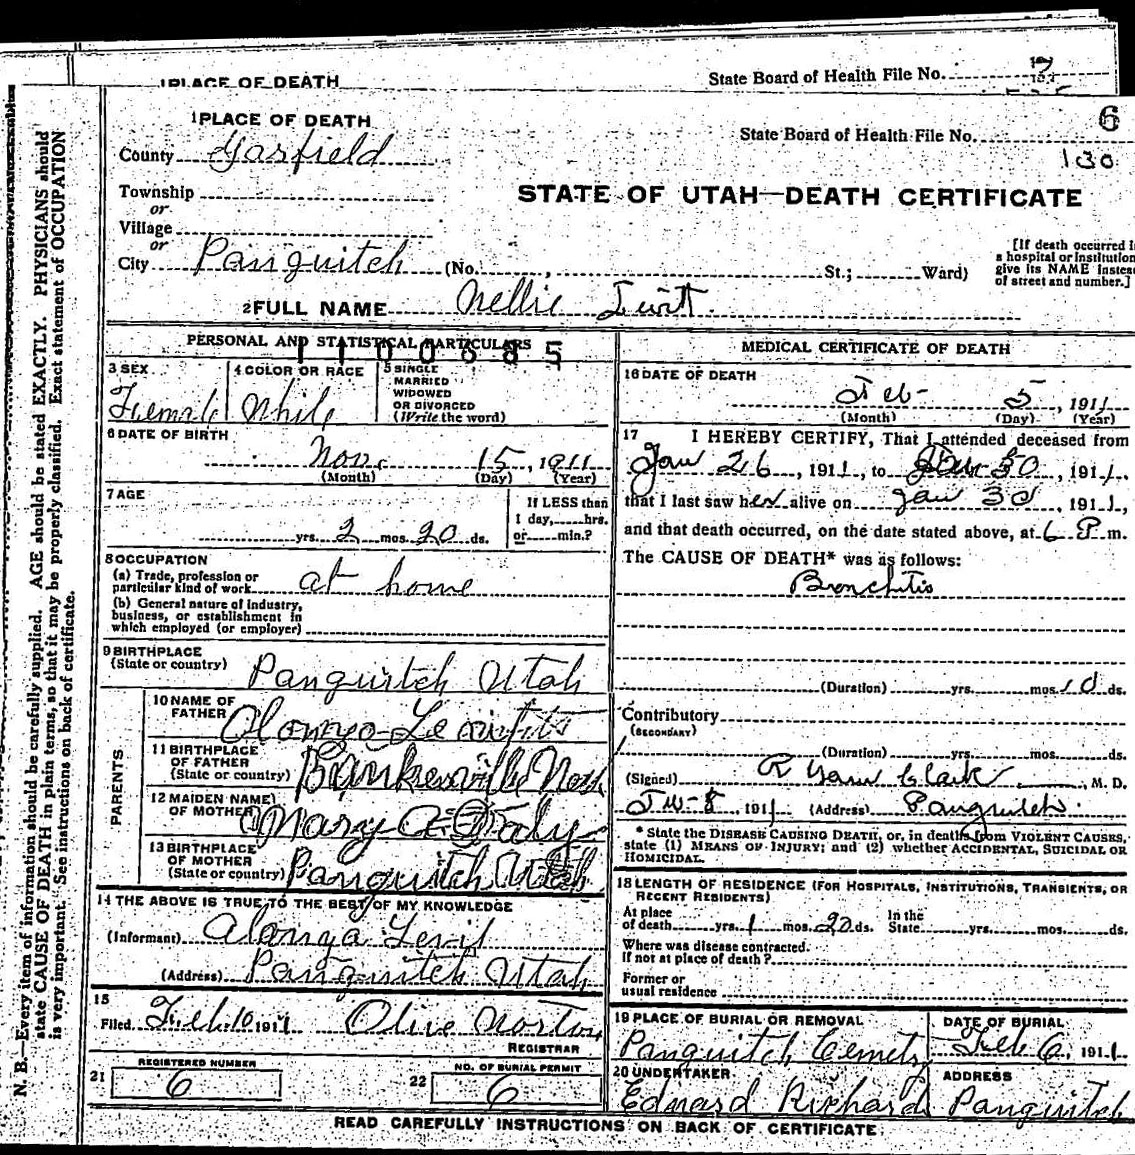 1 PLACE OF DEATH
State Board of Health File No.
1 PLACE OF DEATH
State Board of Health File No. 6
130
County Garfield
Township
or
Village
or
City Panguitch (No. , St.; Ward)
STATE OF UTAH—DEATH CERTIFICATE
[If death occurred in
a hospital or institution
give its NAME instead
of street and number.]
2 FULL NAME Nellie
PERSONAL AND STATISTICAL PARTICULARS
1100685
3 SEX
Female
4 COLOR OR RACE
White
5 SINGLE
MARRIED
WIDOWED
OR DIVORCED
(Write the word)
6 DATE OF BIRTH
Nov. 15, 1911
(Month) (Day) (Year)
7 AGE
yrs. 2 mos. 20 ds.
If LESS than
1 day, hrs.
or min.?
8 OCCUPATION
(a) Trade, profession or
particular kind of work at home
(b) General nature of industry,
business, or establishment in
which employed (or employer)
9 BIRTHPLACE
(State or country) Panguitch Utah
PARENTS
10 NAME OF
FATHER Alonzo
11 BIRTHPLACE
OF FATHER
(State or country)
12 MAIDEN NAME
OF MOTHER Mary
13 BIRTHPLACE
OF MOTHER
(State or country) Panguitch Utah
14 THE ABOVE IS TRUE TO THE BEST OF MY KNOWLEDGE
(Informant)
(Address) Panguitch Utah
15
Filed Feb. 10 1911 Olive Norton
REGISTRAR
REGISTERED NUMBER
21 6
NO. OF BURIAL PERMIT
22 6
MEDICAL CERTIFICATE OF DEATH
16 DATE OF DEATH
Feb 5, 1911
(Month) (Day) (Year)
17 I HEREBY CERTIFY, That I attended deceased from
Jan 26, 1911, to Jan 30, 1911.
that I last saw her alive on Jan 30, 1911,
and that death occurred, on the date stated above, at 6 P.m.
The CAUSE OF DEATH* was as follows:
Bronchitis
(Duration) yrs. mos. 10 ds.
Contributory
(SECONDARY)
(Duration) yrs. mos. ds.
(Signed) R Clark, M. D.
8, 1911 (Address) Panguitch.
* State the DISEASE CAUSING DEATH, or, in deaths from VIOLENT CAUSES,
state (1) MEANS OF INJURY; and (2) whether ACCIDENTAL, SUICIDAL OR
HOMICIDAL.
18 LENGTH OF RESIDENCE (FOR HOSPITALS, INSTITUTIONS, TRANSIENTS, OR
RECENT RESIDENTS)
At place
of death yrs. 1 mos. 20 ds. In the
State yrs. mos. ds.
Where was disease contracted.
If not at place of death?
Former or
usual residence
19 PLACE OF BURIAL OR REMOVAL
Panguitch
DATE OF BURIAL
Feb 6, 1911.
20 UNDERTAKER
Edward Richards
ADDRESS
Panguitch
READ CAREFULLY INSTRUCTIONS ON BACK OF CERTIFICATE
N. B.—Every item of information should be carefully supplied. AGE should be stated EXACTLY. PHYSICIANS should
state CAUSE OF DEATH in plain terms, so that it may be properly classified. Exact statement of OCCUPATION
is very important. See instructions on back of certificate.